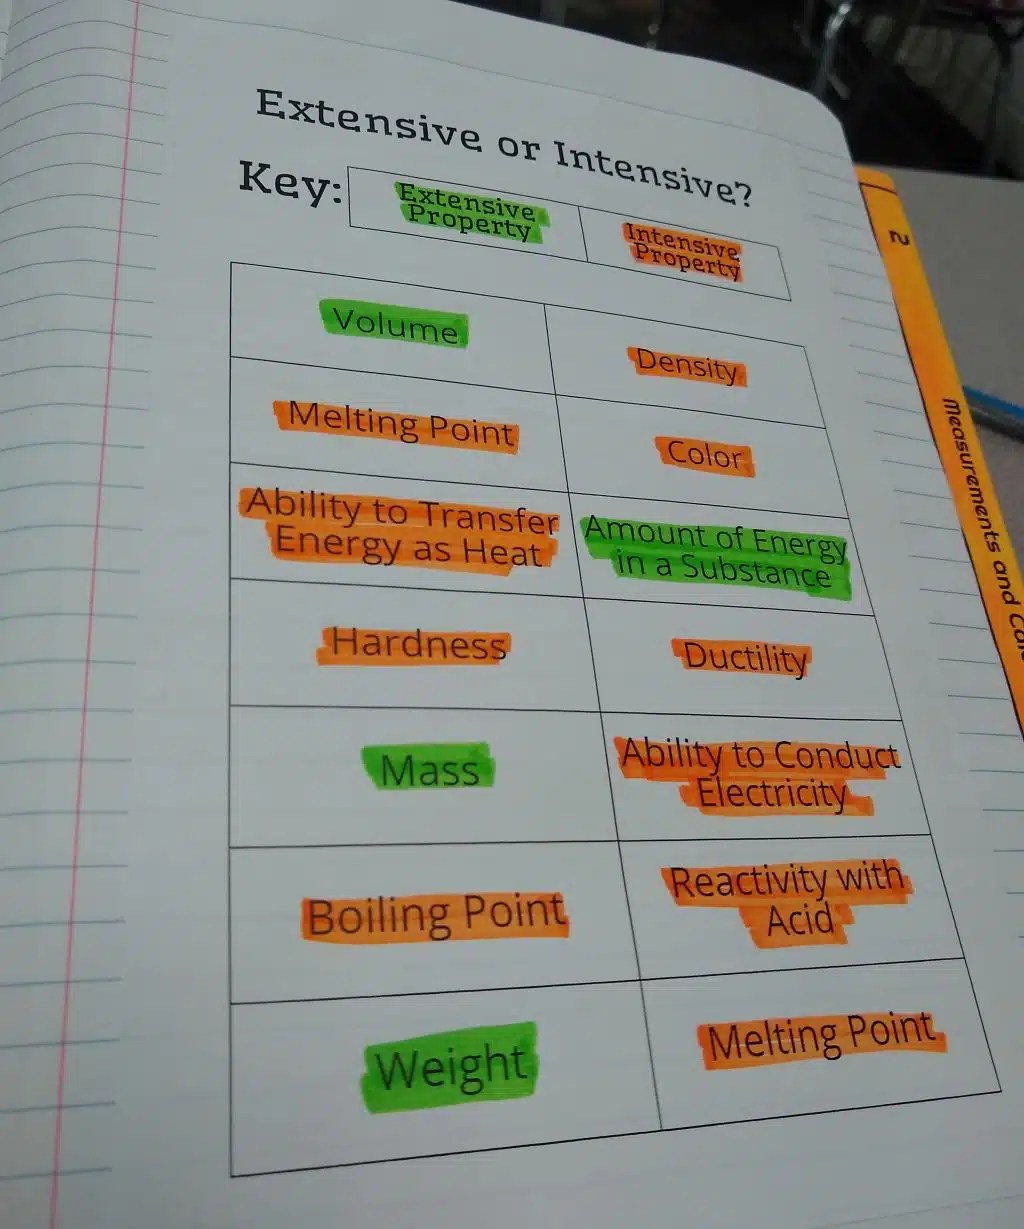 Extensive or Intensive?
Key:
Extensive
Property
Intensive
Property
Volume
Density
Melting Point
Color
Ability to Transfer
Energy as Heat
Amount of Energy
in a Substance
Hardness
Ductility
Mass
Ability to Conduct
Electricity
Boiling Point
Reactivity with
Acid
Weight
Melting Point
2
Measurements and